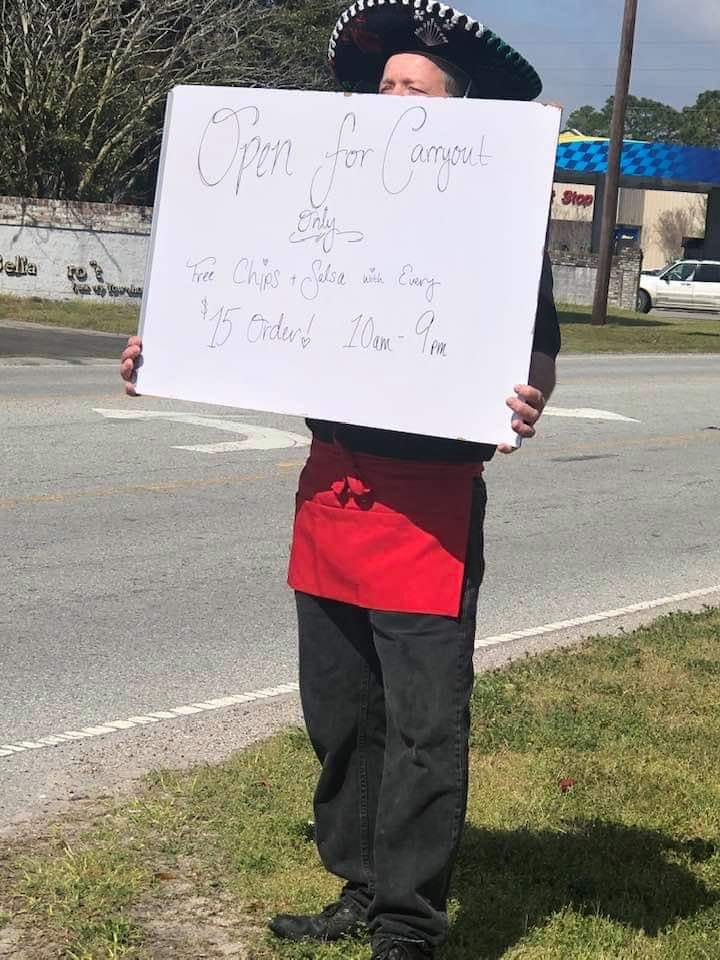 Open for Carryout
Only
Free Chips + Salsa with Every
$15 Order! 10am - 9pm
Stop